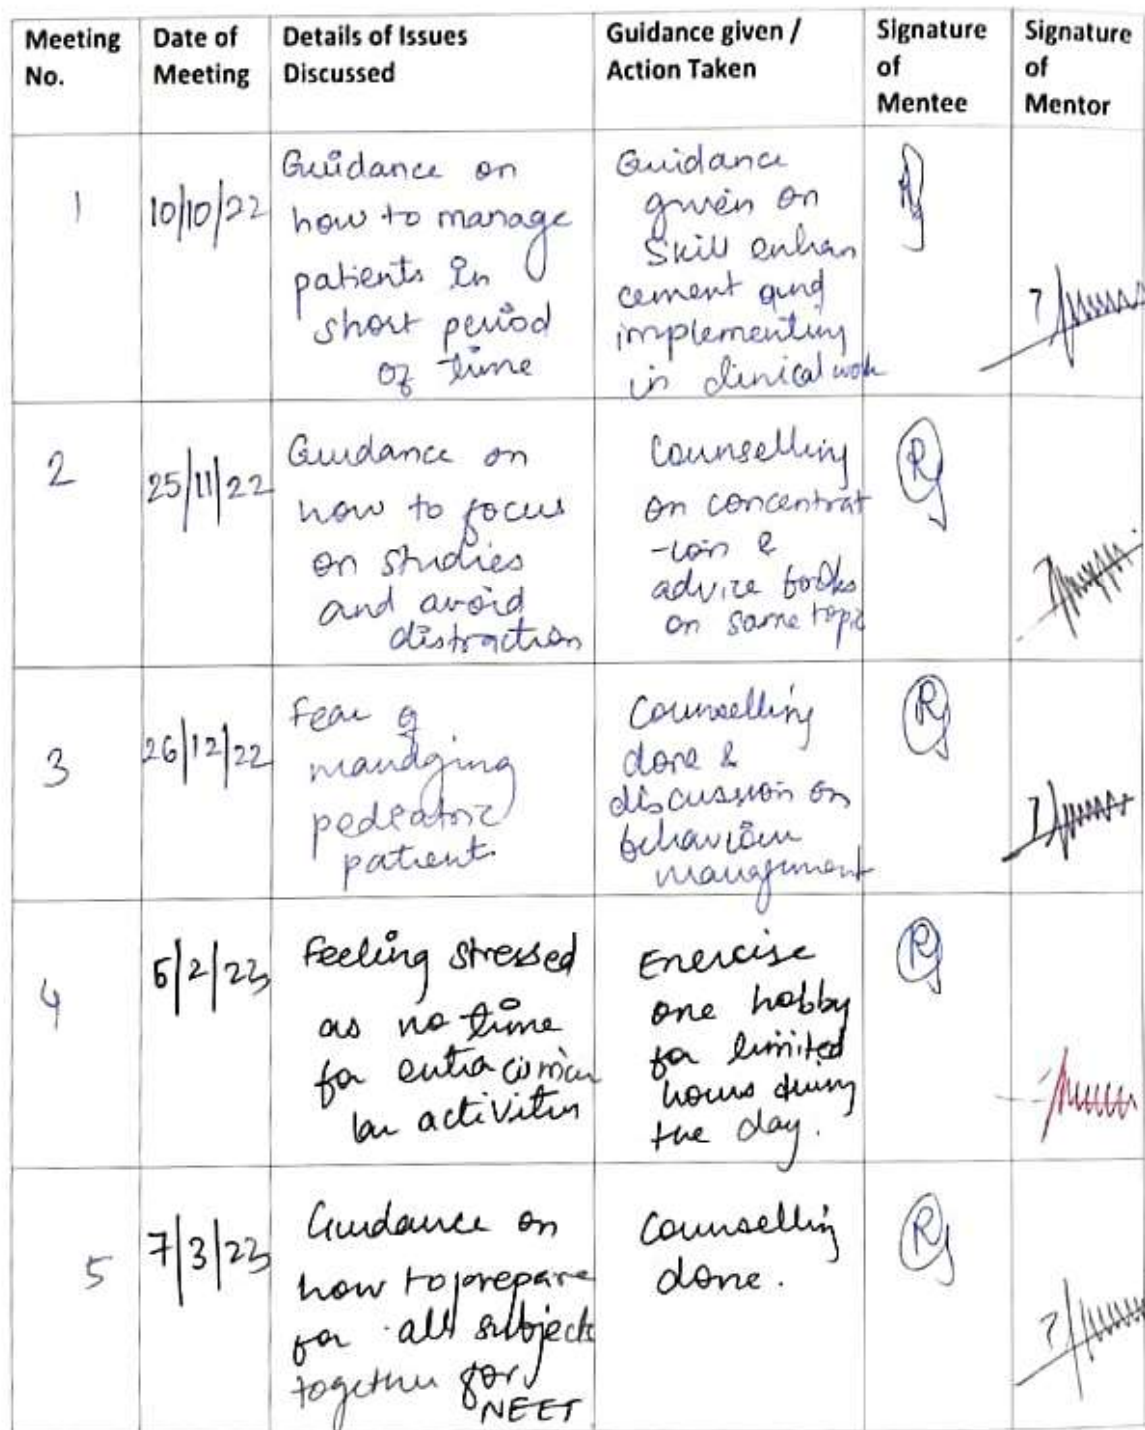 Meeting No.
Date of Meeting
Details of Issues Discussed
Guidance given / Action Taken
Signature of Mentee
Signature of Mentor
1
10/10/22
Guidance on
how to manage
patients in
short period
of time
Guidance
given on
skill enhan
cement and
implementing
in clinical work
2
25/11/22
Guidance on
how to focus
on studies
and avoid
distraction
Counselling
on concentrat
-ion &
advice books
on same topic
3
26/12/22
Fear of
managing
pediatric
patient
Counselling
done &
discussion on
behaviour
management
4
/2/23
Feeling stressed
as no time
for extra curricu
lar activities
Exercise
one hobby
for limited
hours during
the day.
5
7/3/23
Guidance on
how to prepare
for all subjects
together for
NEET
Counselling
done.